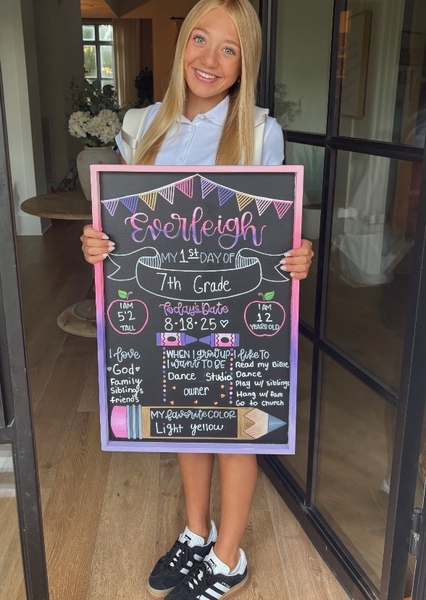 Everleigh
MY 1st DAY OF
7th Grade
I AM
5'2
TALL
Today's Date
8-18-25 ♡
I AM
12
YEARS OLD
I love
♥God♥
Family
Siblings
friends
WHEN I grow up
I want TO BE
Dance Studio
owner
I like TO
Read my Bible
Dance
Play w/ siblings
Hang w/ Fam
Go to Church
MY favorite COLOR
Light yellow